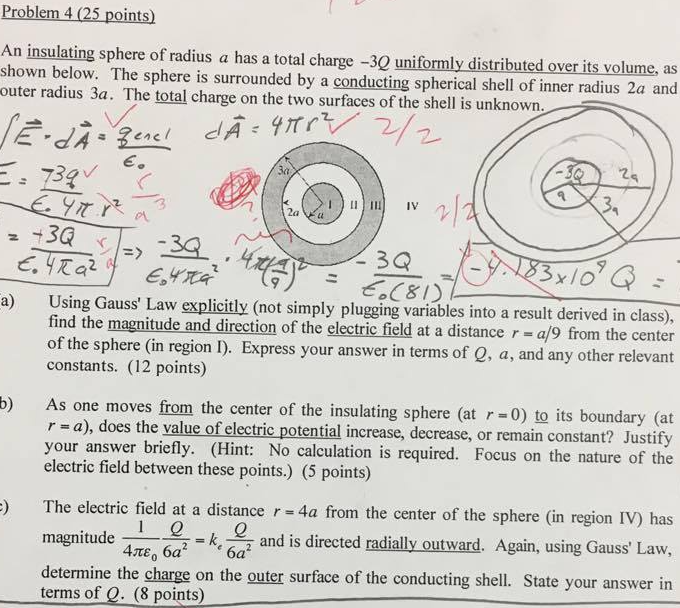 Problem 4 (25 points)
An insulating sphere of radius a has a total charge –3Q uniformly distributed over its volume, as
shown below. The sphere is surrounded by a conducting spherical shell of inner radius 2a and
outer radius 3a. The total charge on the two surfaces of the shell is unknown.
∫E⃗·dA⃗ = qencl/ε₀ dA⃗ = 4πr² 2/2
3a 2a a I II III IV
-3Q a 2a 3a
2/2
= +3Q/ε₀4πa² => -3Q/ε₀4πa² · 4π(a/9)² = -3Q/ε₀(81) = -4.183x10⁹ Q =
a) Using Gauss' Law explicitly (not simply plugging variables into a result derived in class),
find the magnitude and direction of the electric field at a distance r = a/9 from the center
of the sphere (in region I). Express your answer in terms of Q, a, and any other relevant
constants. (12 points)
b) As one moves from the center of the insulating sphere (at r = 0) to its boundary (at
r = a), does the value of electric potential increase, decrease, or remain constant? Justify
your answer briefly. (Hint: No calculation is required. Focus on the nature of the
electric field between these points.) (5 points)
c) The electric field at a distance r = 4a from the center of the sphere (in region IV) has
magnitude 1/4πε₀ Q/6a² = kₑ Q/6a² and is directed radially outward. Again, using Gauss' Law,
determine the charge on the outer surface of the conducting shell. State your answer in
terms of Q. (8 points)